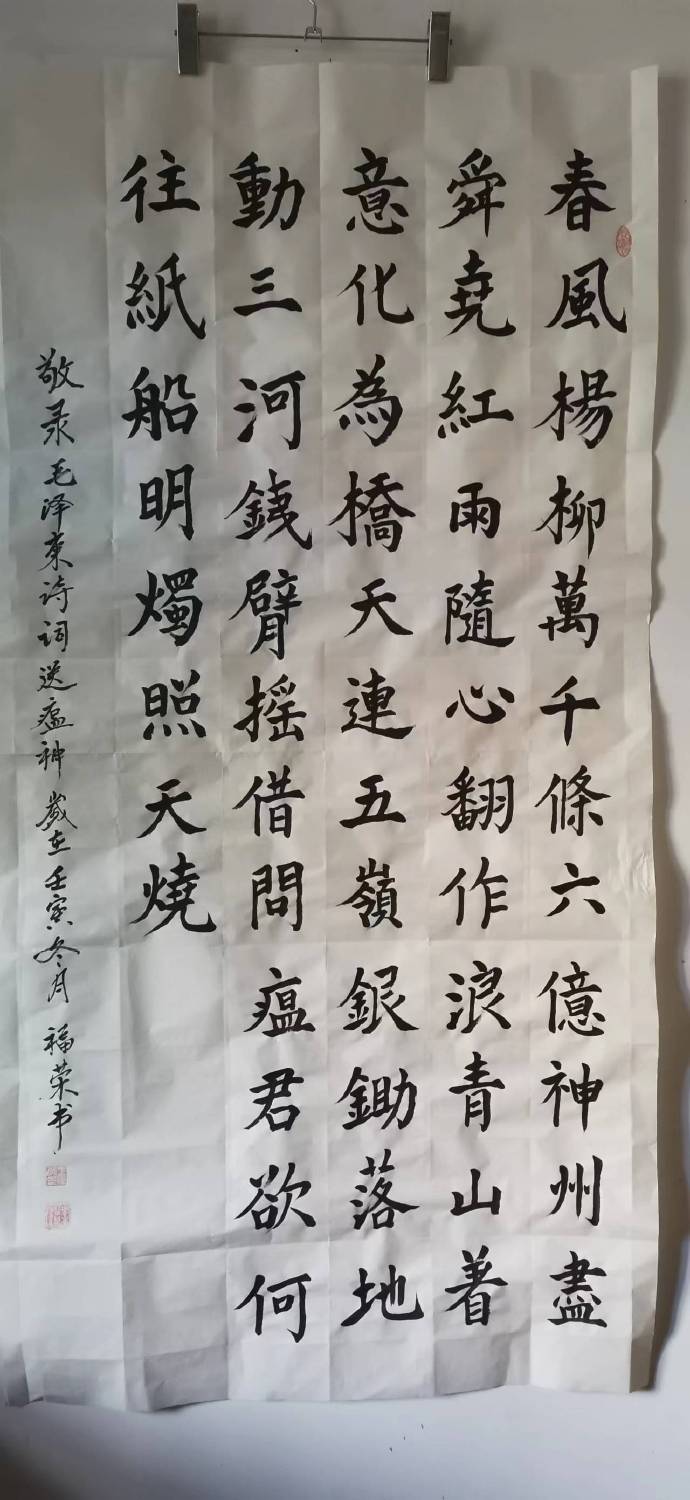 春風楊柳萬千條六億神州盡
舜堯紅雨隨心翻作浪青山着
意化為橋天連五嶺銀鋤落地
動三河鐵臂摇借問瘟君欲何
往紙船明燭照天燒
敬录毛泽東诗词送瘟神歲在壬寅冬月福荣书